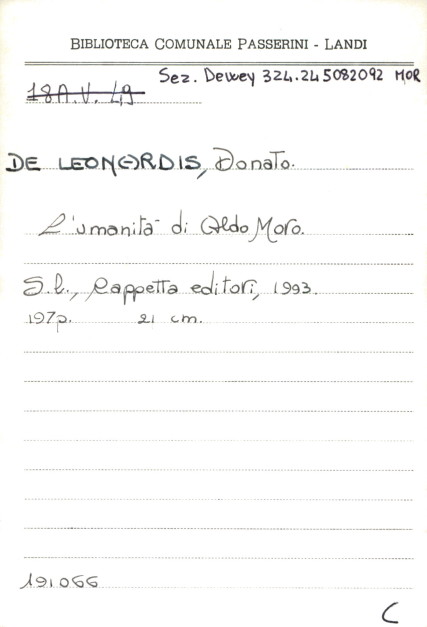 BIBLIOTECA COMUNALE PASSERINI - LANDI
Sez. Dewey 324.245082092 MOR
18A.V. 49
DE LEONARDIS, Donato.
L'umanità di Aldo Moro.
S.l., Rappetta editori, 1993.
197p. 21 cm.
191066
C